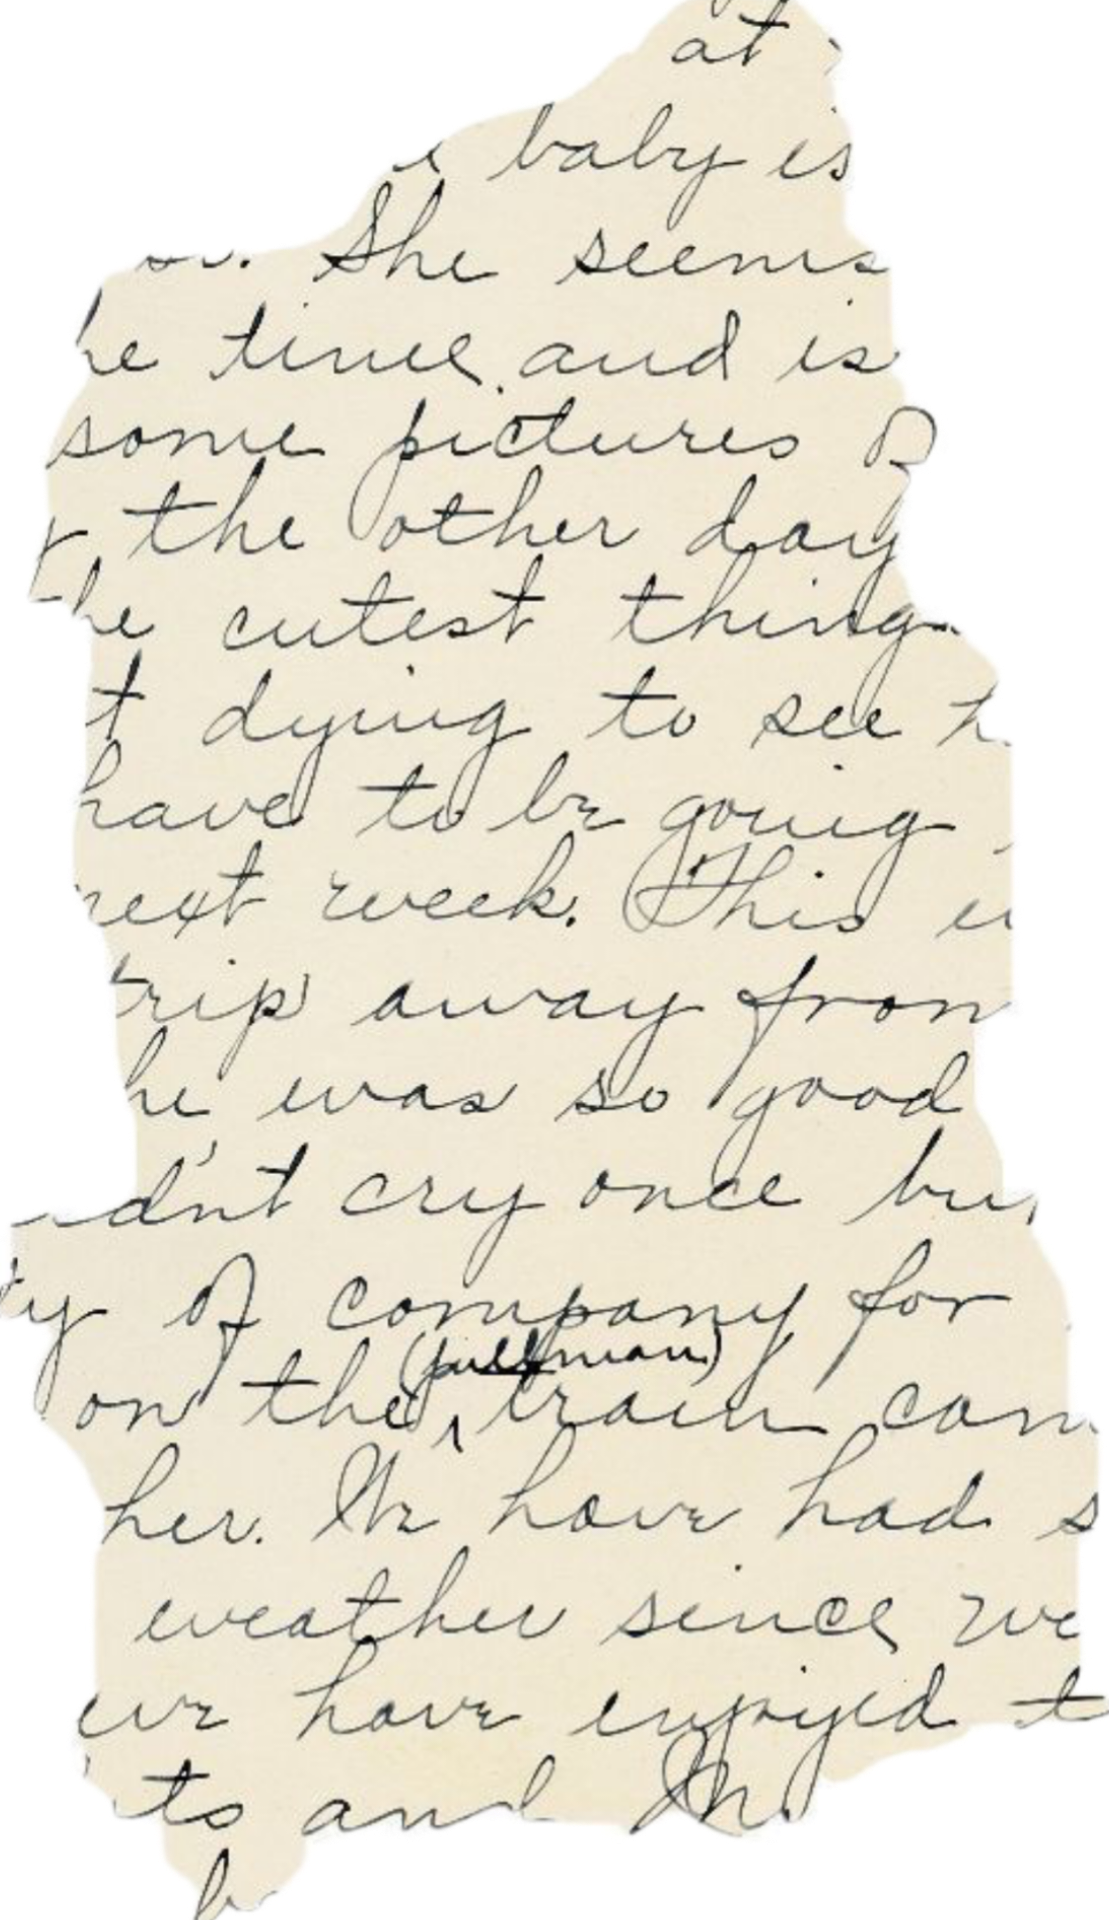 at
baby is
She seems
he time and is
some pictures of
the other day
he cutest thing
t dying to see h
have to be going
next week. This
trip away from
he was so good
dn't cry once bu
ty of company for
(pullman)
on the ^ train cam
her. We have had s
weather since we
we have enjoyed t
ts and